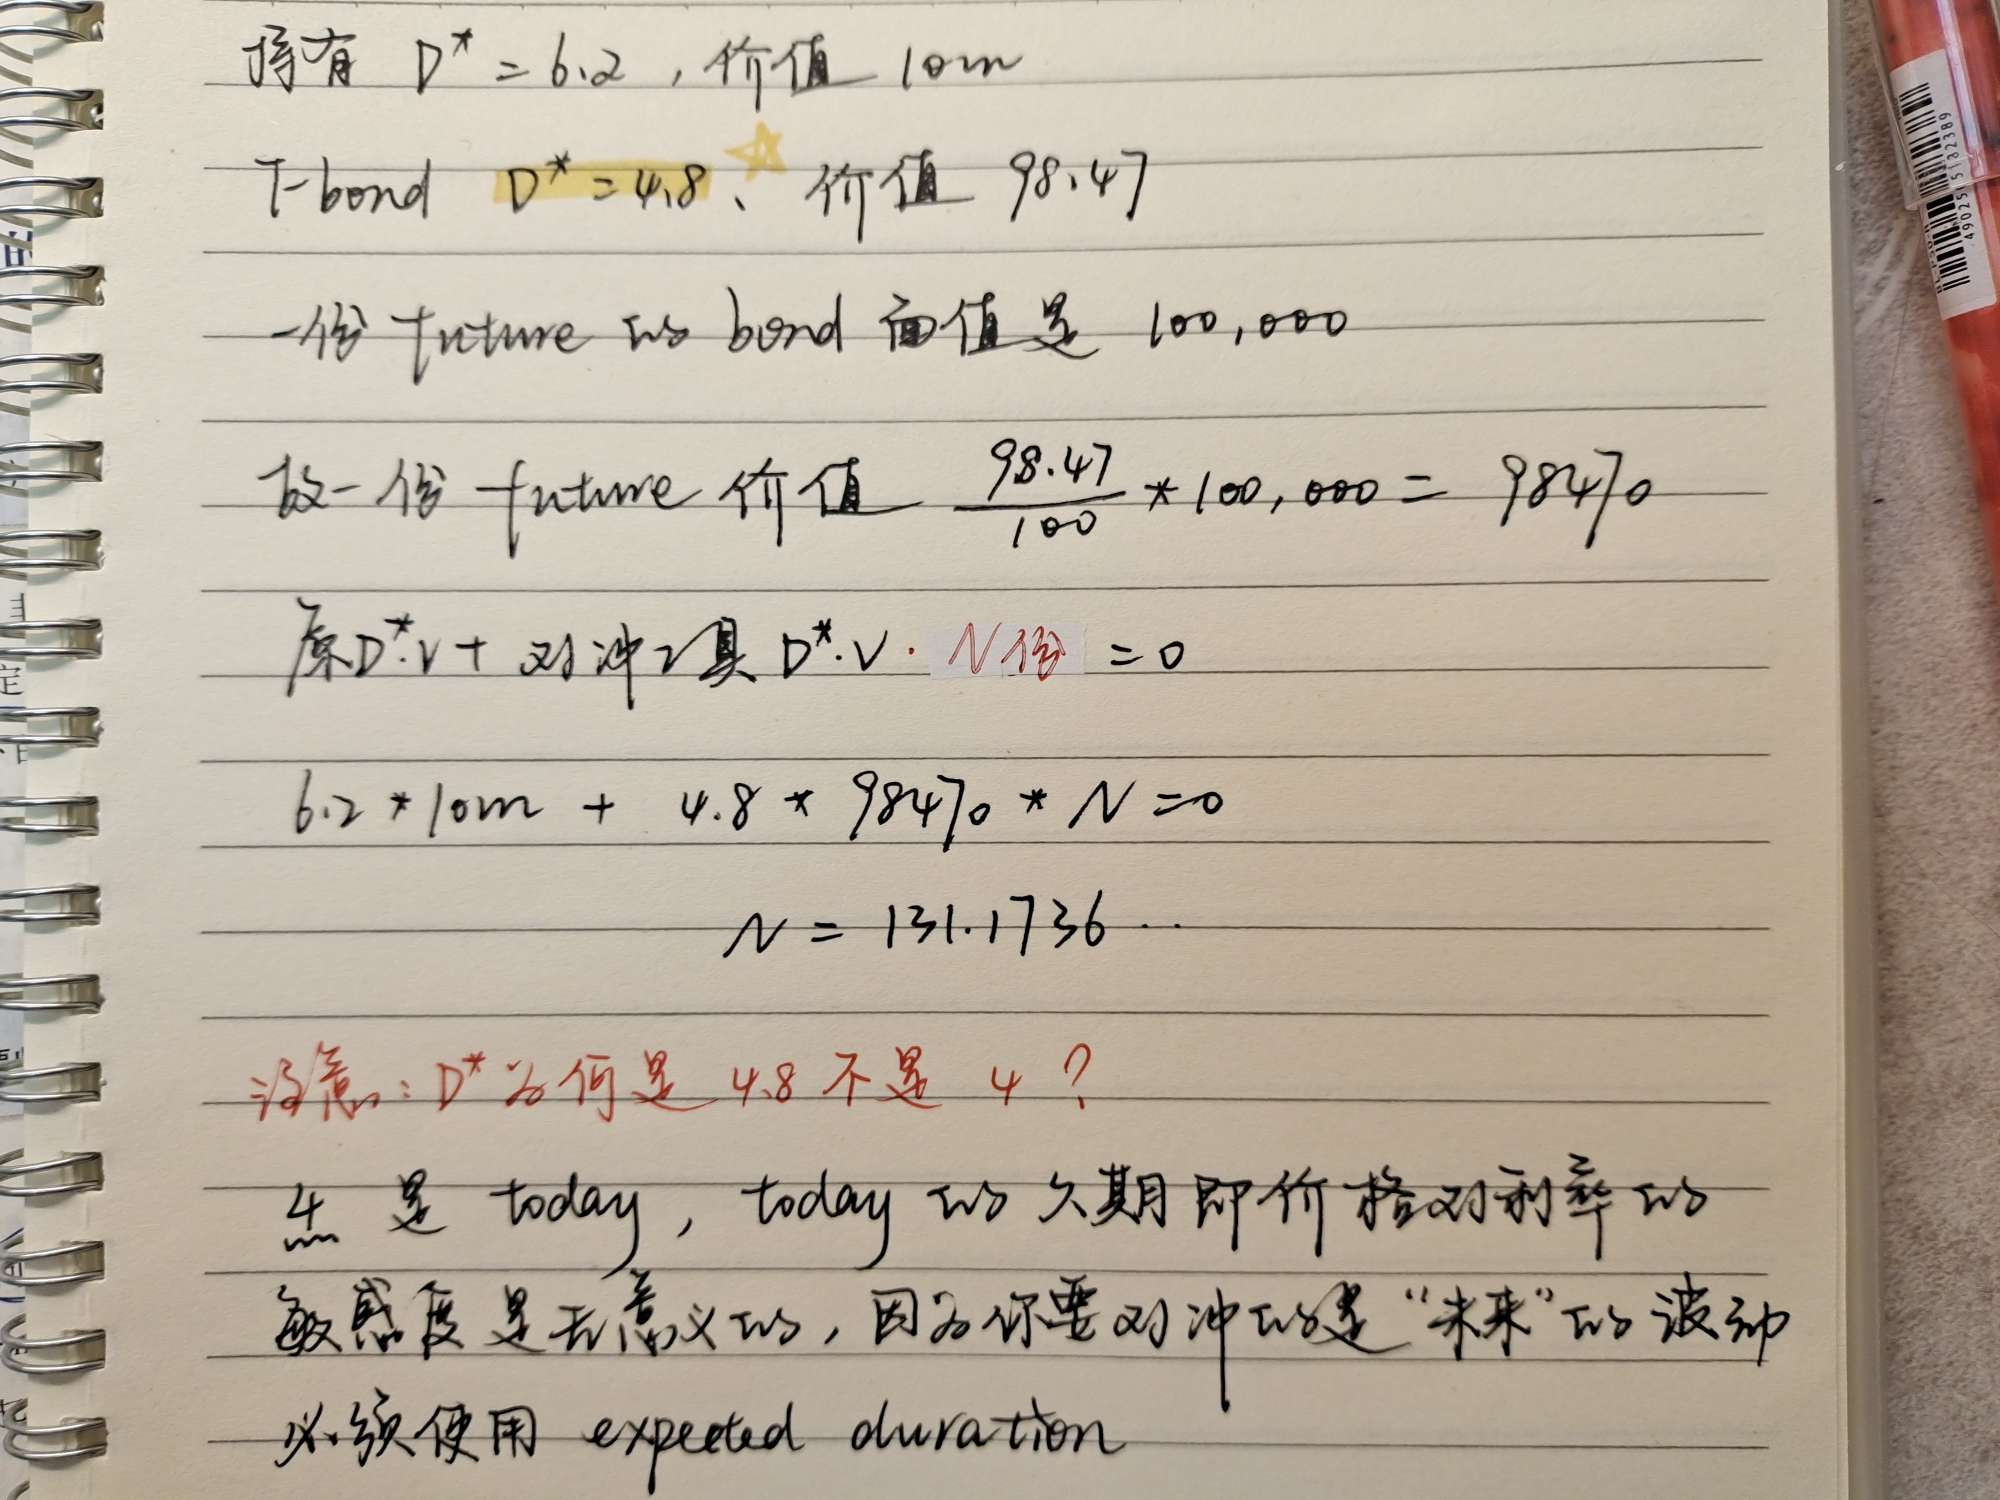 持有 D* = 6.2 , 价值 10m
T-bond D* = 4.8 、 价值 98.47
一份 future 的 bond 面值是 100,000
故一份 future 价值 98.47/100 * 100,000 = 98470
原D*·V + 对冲工具 D*·V · N份 = 0
6.2 * 10m + 4.8 * 98470 * N = 0
N = 131.1736 ··
注意: D* 为何是 4.8 不是 4 ?
4 是 today, today 的久期即价格对利率的
敏感度是无意义的, 因为你要对冲的是“未来”的波动
必须使用 expected duration
4902505132389